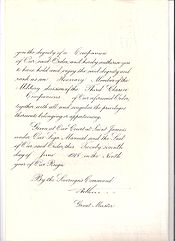 you the dignity of a Companion
of Our said Order, and hereby authorize you
to have hold and enjoy the said dignity and
rank as an Honorary Member of the
Military division of the Third Class or
Companions of Our aforesaid Order,
together with all and singular the privileges
thereunto belonging or appertaining.
Given at Our Court at Saint James's
under Our Sign Manual and the Seal
of Our said Order, this Twenty seventh
day of June 1918 in the Ninth
year of Our Reign.
By the Sovereign's Command.
Grand Master